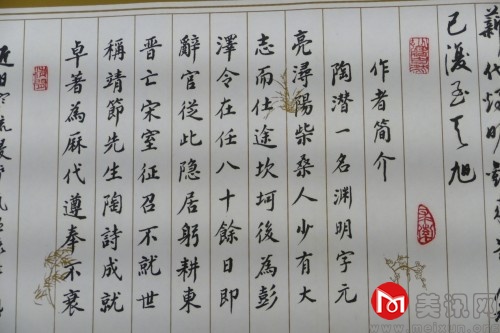 薪代
已復至天旭
作者简介
陶潜一名渊明字元
亮潯陽柴桑人少有大
志而仕途坎坷後為彭
澤令在任八十餘日即
辭官從此隐居躬耕東
晋亡宋室征召不就世
稱靖節先生陶詩成就
卓著為厤代遵奉不衰
近日
美讯网